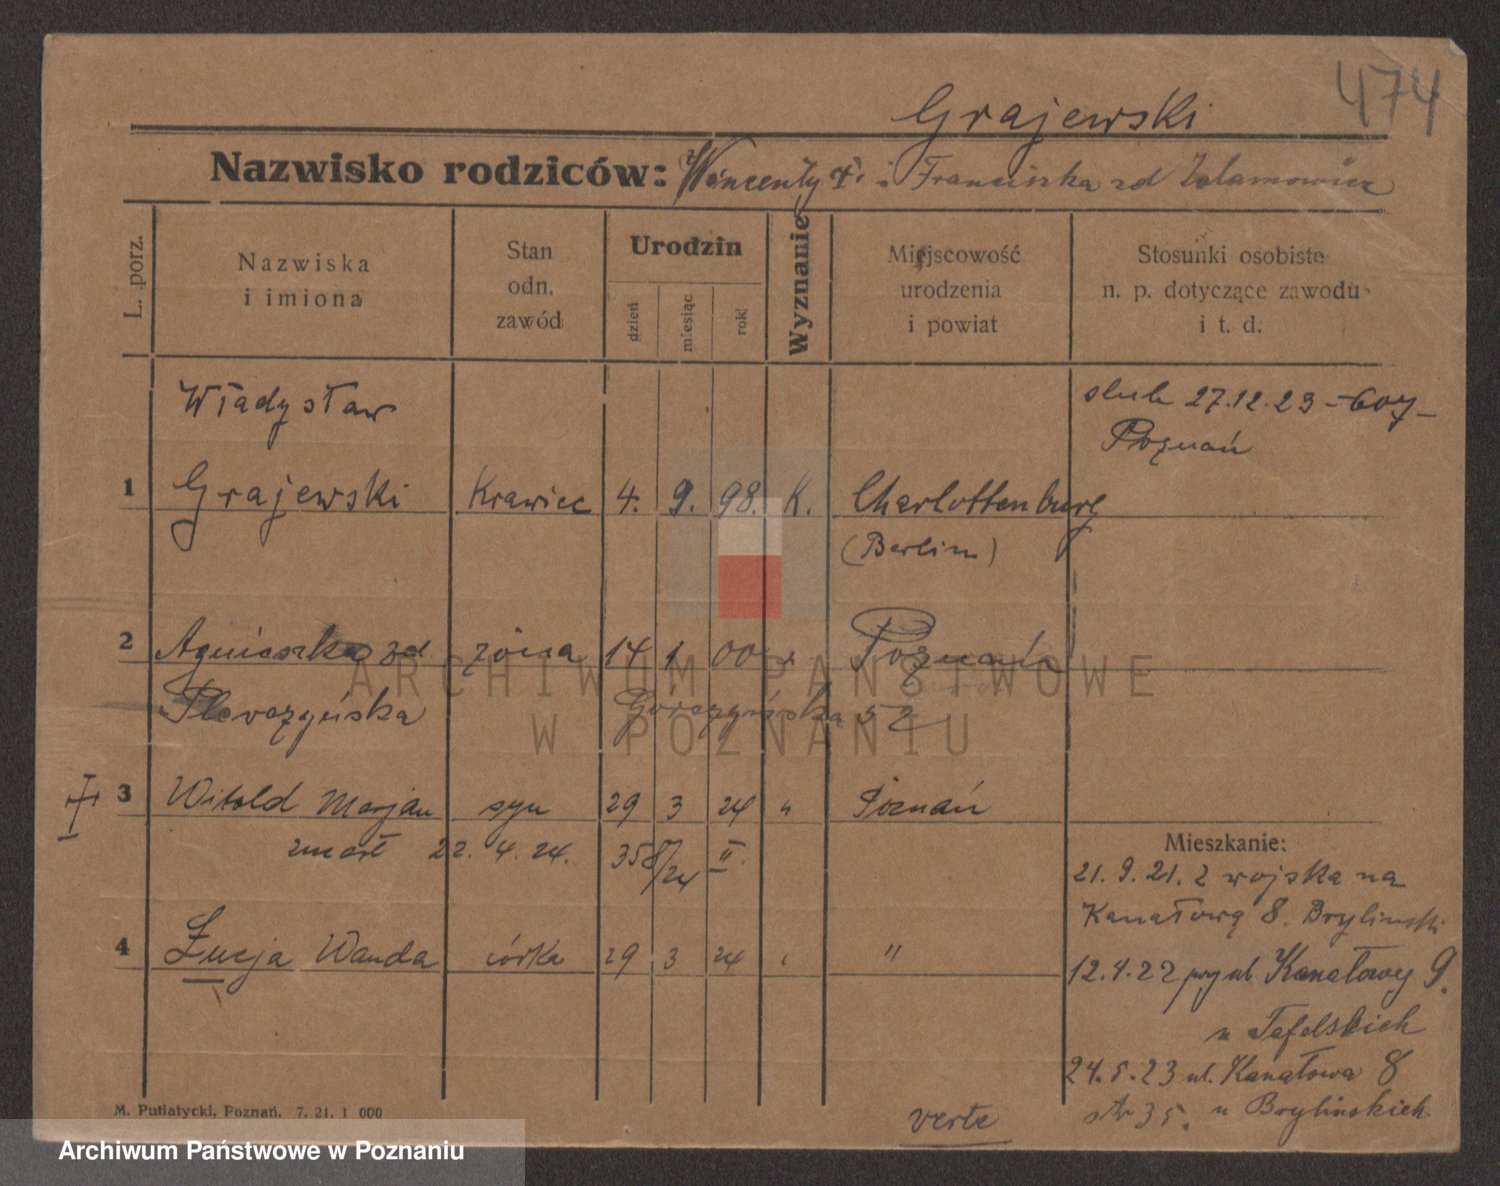 474
Grajewski
Nazwisko rodziców: Wincenty i Franciszka zd
L. porz.
Nazwiska i imiona
Stan odn. zawód
Urodzin
dzień miesiąc rok
Wyznanie
Miejscowość urodzenia i powiat
Stosunki osobiste n. p. dotyczące zawodu i t. d.
Władysław
ślub 27.12.23 – 607 –
Poznań
1 Grajewski Krawiec 4. 9. 98. K. Charlottenburg
(Berlin)
2 Agnieszka zd żona 14 1 00 Poznań
ARCHIWUM PAŃSTWOWE
Górczyńska 52
W POZNANIU
3 Witold Marjan syn 29 3 24 " Poznań
zmarł 22. 4. 24. 358/24 II.
Mieszkanie:
21. 9. 21. z wojska na
Kanałową 8. Brylinski
4 Łucja Wanda córka 29 3 24 "
12.4.22 przy ul. Kanałowej 9.
u Tafelskich
24.5.23 ul. Kanałowa 8
str 35. u Brylińskich
M. Putiatycki, Poznań. 7. 21. 1 000
verte
Archiwum Państwowe w Poznaniu